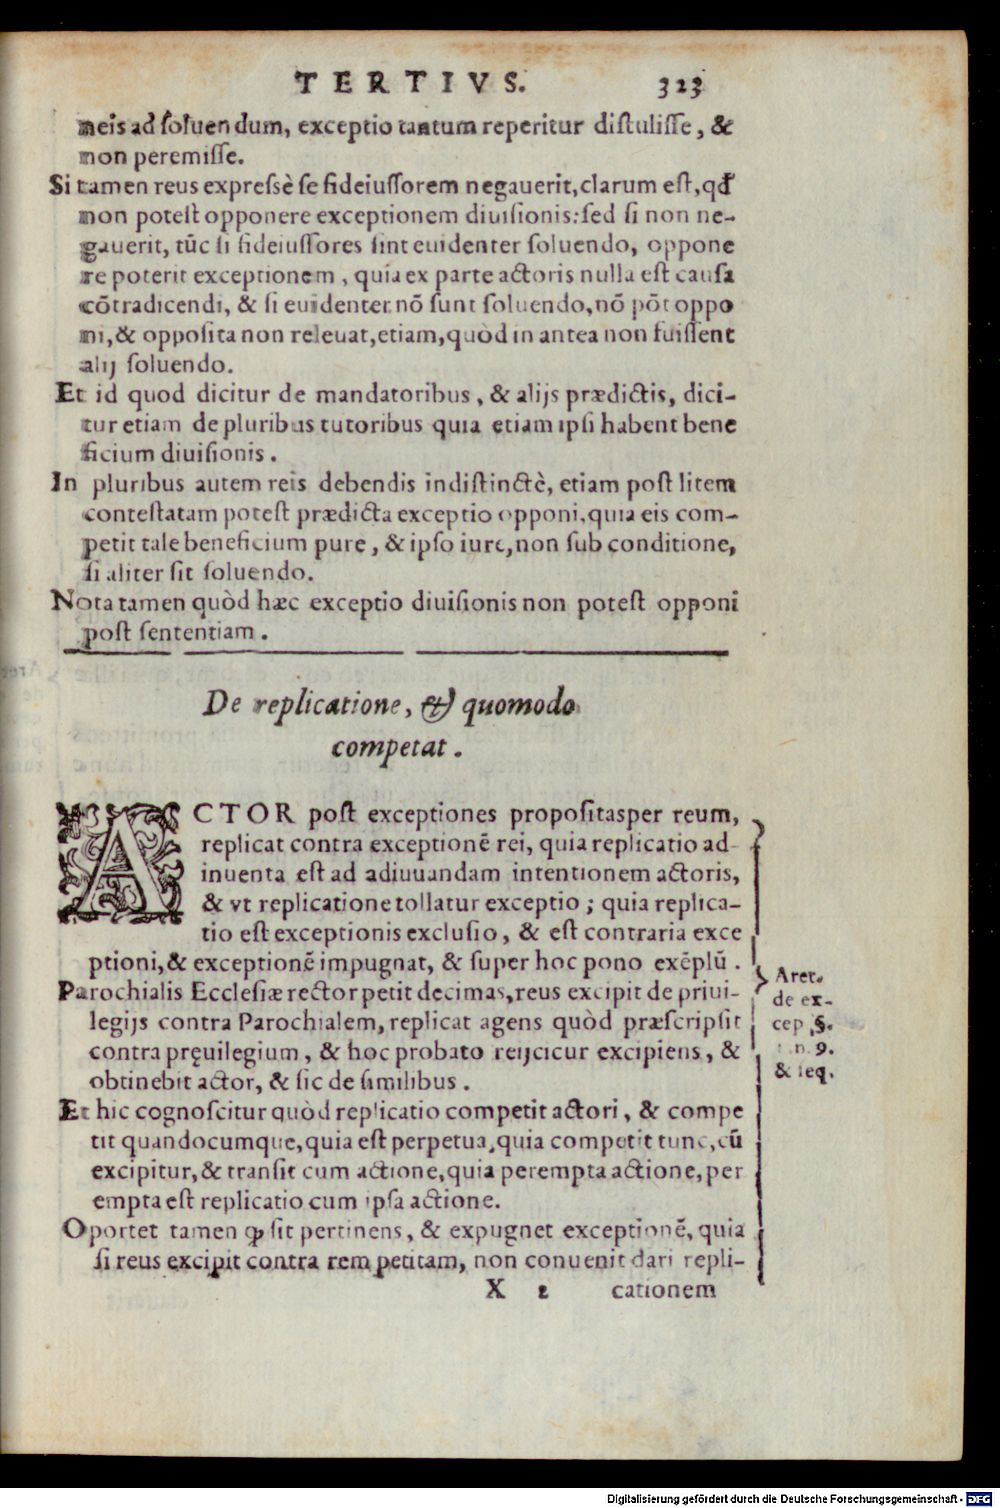 TERTIVS. 323
neis ad soluendum, exceptio tantum reperitur distulisse, &
non peremisse.
Si tamen reus expressè se fideiussorem negauerit, clarum est, qđ
non potest opponere exceptionem diuisionis: sed si non ne-
gauerit, tūc si fideiussores sint euidenter soluendo, oppone
re poterit exceptionem, quia ex parte actoris nulla est causa
cōtradicendi, & si euidenter nō sunt soluendo, nō pōt oppo
ni, & opposita non releuat, etiam, quòd in antea non fuissent
alij soluendo.
Et id quod dicitur de mandatoribus, & alijs prædictis, dici-
tur etiam de pluribus tutoribus quia etiam ipsi habent bene
ficium diuisionis.
In pluribus autem reis debendis indistinctè, etiam post litem
contestatam potest prædicta exceptio opponi, quia eis com-
petit tale beneficium pure, & ipso iure, non sub conditione,
si aliter sit soluendo.
Nota tamen quòd hæc exceptio diuisionis non potest opponi
post sententiam.
De replicatione, & quomodo
competat.
ACTOR post exceptiones propositas per reum,
replicat contra exceptionē rei, quia replicatio ad
inuenta est ad adiuuandam intentionem actoris,
& vt replicatione tollatur exceptio; quia replica-
tio est exceptionis exclusio, & est contraria exce
ptioni, & exceptionē impugnat, & super hoc pono exēplū.
Parochialis Ecclesiæ rector petit decimas, reus excipit de priui-
legijs contra Parochialem, replicat agens quòd præscripsit
contra pręuilegium, & hoc probato reijcicur excipiens, &
obtinebit actor, & sic de similibus.
Et hic cognoscitur quòd replicatio competit actori, & compe
tit quandocumque, quia est perpetua, quia competit tunc, cū
excipitur, & transit cum actione, quia perempta actione, per
empta est replicatio cum ipsa actione.
Oportet tamen ꝙ sit pertinens, & expugnet exceptionē, quia
si reus excipit contra rem petitam, non conuenit dari repli-
X 2 cationem
Aret.
de ex-
cep. §.
n. 9.
& seq.
Digitalisierung gefördert durch die Deutsche Forschungsgemeinschaft - DFG